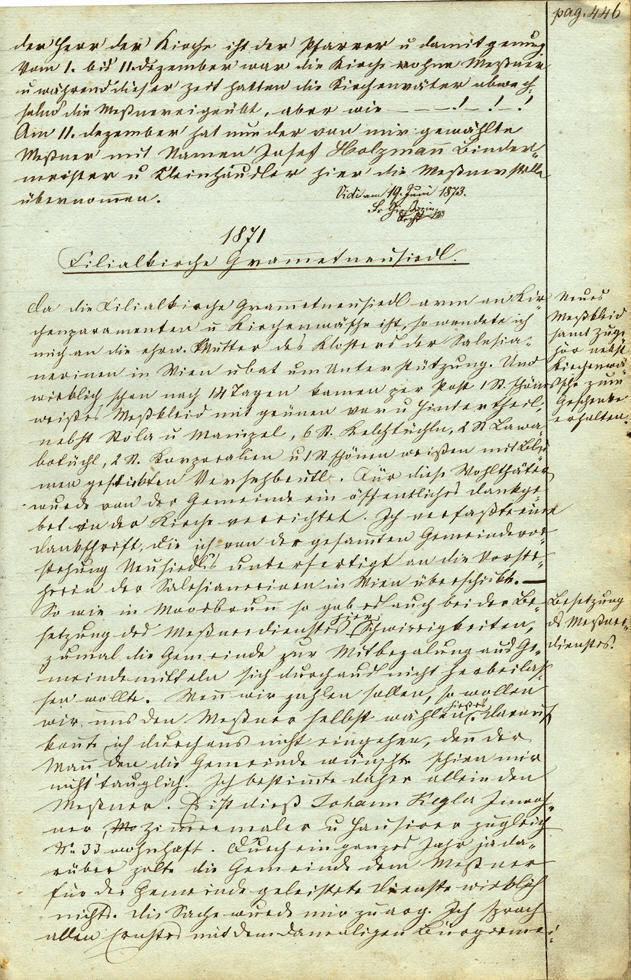 pag. 446
der Herr der Kirche ist der Pfarrer u damit genug
Vom 1. bis 11. Dezember war die Kirche ohne Meßner
u während dieser Zeit hatten die Kirchenväter abwech
selnd die Meßnerei geübt, aber wie — — —! —! —!
Am 11. Dezember hat nun der von mir gewählte
Meßner mit Namen Josef Holzmann Binder-
meister u Kleinhäusler hier die Meßnerstelle
übernommen.
Vidi am 19. Juni 1873.
1871
Filialkirche Grametneusiedl.
Da die Filialkirche Grametneusiedl arm an Kir-
chenparamenten u Kirchenwäsche ist, so wendete ich
mich an die ehrw. Mutter des Klosters der Salesia-
nerinen in Wien u bat um Unterstützung. Und
wirklich schon nach 14 Tagen kamen per Post 1 St. schönes
weißes Meßkleid mit grünen vor u hintertheil,
nebst Stola u Manipel, 6 St. Kelchtüchln, 2 St Lawa-
botüchl, 2 St. Korporalien u 1 St schönen weißen mit Blu
men gestickten Versehbeutl. Für diese Wohlthäter
wurde von der Gemeinde ein öffentliches Dankge-
bet in der Kirche verrichtet. Ich verfaßte eine
Dankschrift, die ich von der gesamten Gemeindevor-
stehung Neusiedls unterfertigt an die Vorste-
herin der Salesianerinen in Wien überschickte. —
So wie in Moosbrunn so gab es auch bei der Be-
setzung des Meßnerdienstes hier Schwierigkeiten,
zumal die Gemeinde zur Mitbezalung aus Ge-
meindemitteln sich durchaus nicht herbeilas-
sen wollte. Wenn wir zahlen sollen, so wollen
wir uns den Meßner selbst wählen, hieß es. Darauf
konnte ich durchaus nicht eingehen, den der
Mann den die Gemeinde wünschte schien mir
nicht tauglich. Ich bestimmte daher allein den
Meßner. Es ist dieß Johann Kegla Inwoh-
ner, Zimmermaler u Hausirer zugleich
No 33 wohnhaft. Durch ein ganzes Jahr ja da-
rüber zalte die Gemeinde dem Meßner
für der Gemeinde geleistete Dienste wirklich
nichts. Die Sache wurde mir zu arg. Ich sprach
allen Ernstes mit dem damaligen Bürgermei-
Neues
Meßkleid
samt Zuge
hör nebst
Kirchenwä
sche zum
Geschenke
erhalten.
Besetzung
des Meßner-
dienstes.